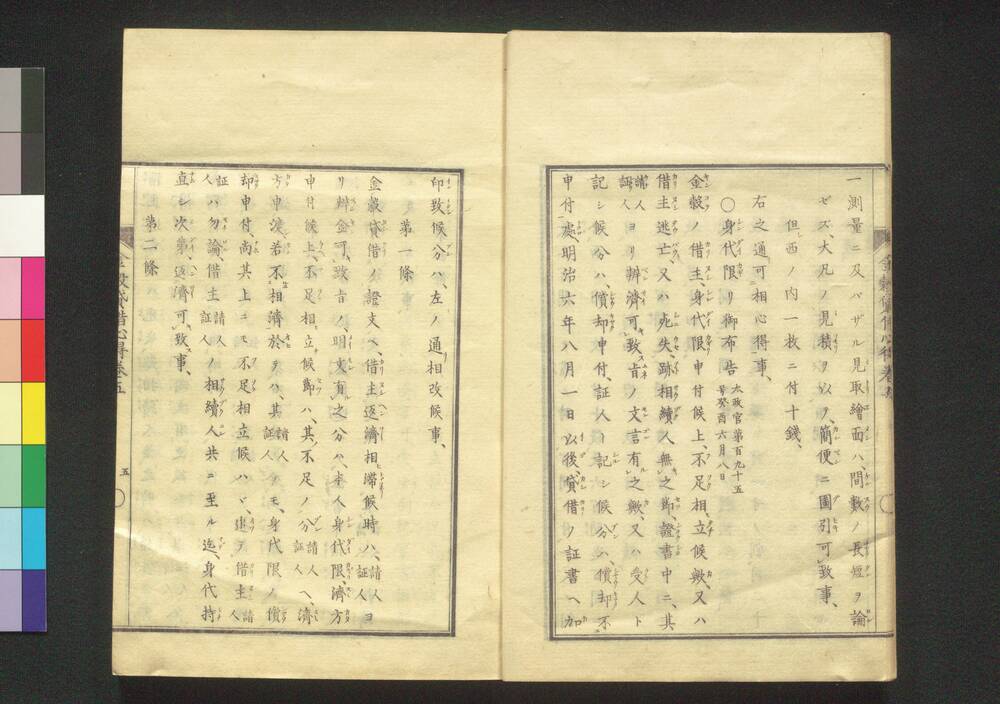 一測量ニ及バザル見取繪面ハ、間數ノ長短ヲ論
ゼズ、大凡ノ見積ヲ以テ、簡便ニ圖引可致事、
但西ノ内一枚ニ付十錢、
右之通可相心得事、
〇身代限リ御布告 太政官第百九十五
号癸酉六月八日
金穀ノ借主、身代限申付候上、不足相立候歟、又ハ
借主逃亡、又ハ死失、跡相續人無之節、證書中ニ、其
請人
証人ヨリ辨濟可致旨ノ文言有之歟又ハ受人ト
記シ候分ハ、償却申付、証人ト記シ候分ハ、償却不
申付處、明治六年八月一日以後、貸借ノ証書ヘ加
印致候分ハ、左ノ通相改候事、
第一條
金穀貸借ノ證文ヘ、借主返濟相滯候時ハ、請人
証人ヨ
リ辨金可致旨ノ、明文有之分ハ、本人身代限、濟方
申付候上、不足相立候節ハ、其不足ノ分請人
証人ヘ、濟
方申渡、若不相濟於テハ、其請人
証人ヲモ、身代限ノ償
却申付、尚其上ニモ不足相立候ハヾ、追テ借主請人
証人ハ勿論、借主請人
証人ノ相續人共ニ至ル迄、身代持
直シ次第、返濟可致事、
第二條
金穀貸借心得卷五
五